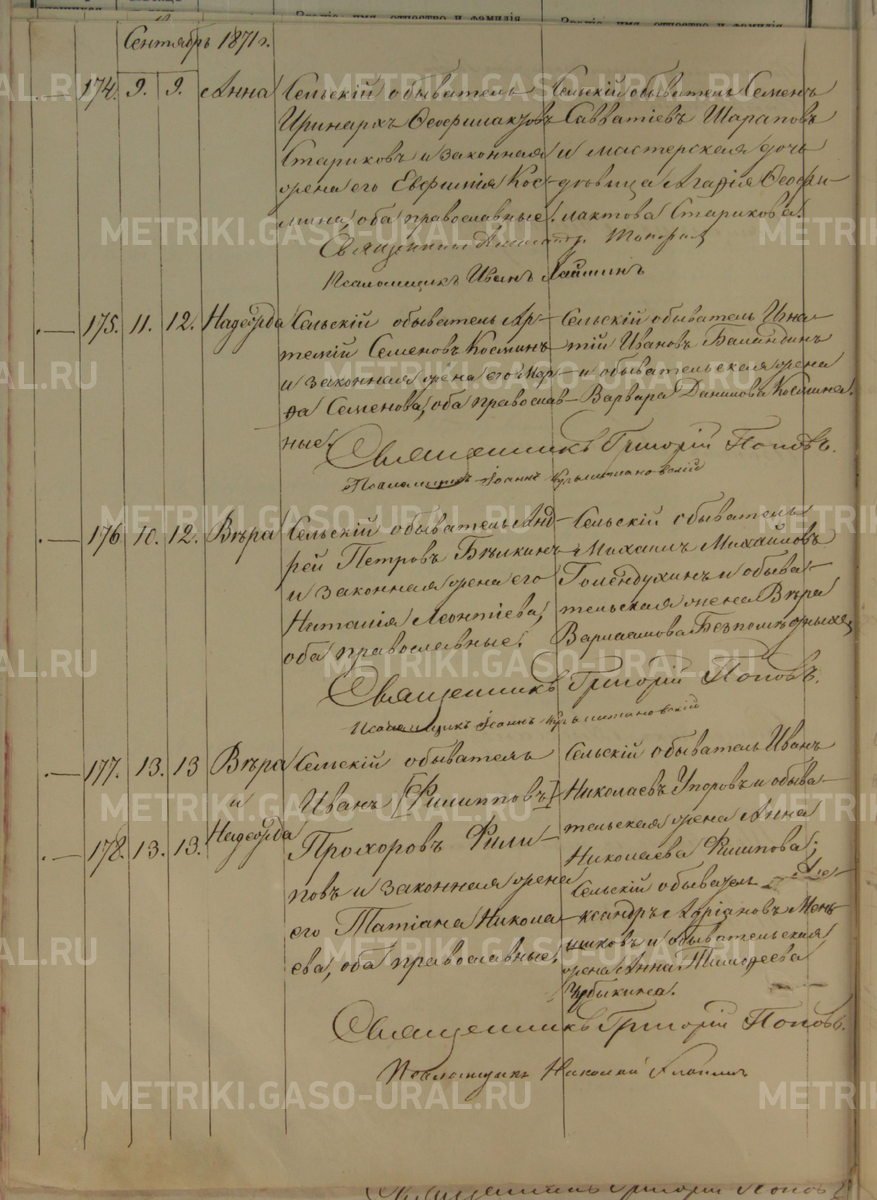 Званіе, имя, отчество и фамилія
Званіе, имя, отчество и фамилія
Сентябрь 1871 г.
174. 9. 9. Анна
Сельскій обыватель
Иринархъ Ѳеофилактовъ
Стариковъ и законная
жена его Евфимія Кос-
мина, оба православные.
Сельскій обыватель Семенъ
Савватіевъ Шараповъ
и мастерская дочь
дѣвица Агафія Ѳеофи-
лактова Старикова.
Священникъ
Псаломщикъ Иванъ
175. 11. 12. Надежда
Сельскій обыватель Ар-
темій Семеновъ Косминъ
и законная жена его Мар-
ѳа Семенова, оба православ-
ные.
Сельскій обыватель Игна-
тій Ивановъ Баландинъ
и обывательская жена
Варвара Данилова Космина.
Священникъ Григорій Поповъ.
Псаломщикъ Іоаннъ
176 10. 12. Вѣра
Сельскій обыватель Анд-
рей Петровъ Бѣлкинъ
и законная жена его
Наталія Леонтіева,
оба православные.
Сельскій обыватель
Михаилъ Михайловъ
Голендухинъ и обыва-
тельская жена Вѣра
Варлаамова Безпомѣстныхъ
Священникъ Григорій Поповъ.
Псаломщикъ Іоаннъ
177. 13. 13 Вѣра
и
178. 13. 13. Надежда
Сельскій обыватель
Иванъ [Филипповъ]
Прохоровъ Фили-
повъ и законная жена
его Татіана Никола-
ева, оба православные.
Сельскій обыватель Иванъ
Николаевъ Упоровъ и обыва-
тельская жена Анна
Николаева Филипова;
Сельскій обыватель Але-
ксандръ Адріановъ Мень-
шиковъ и обывательская
жена Анна Тимоѳеева
Чубыкина.
Священникъ Григорій Поповъ.
Псаломщикъ Николай
Священникъ Григорій Поповъ
METRIKI.GASO-URAL.RU